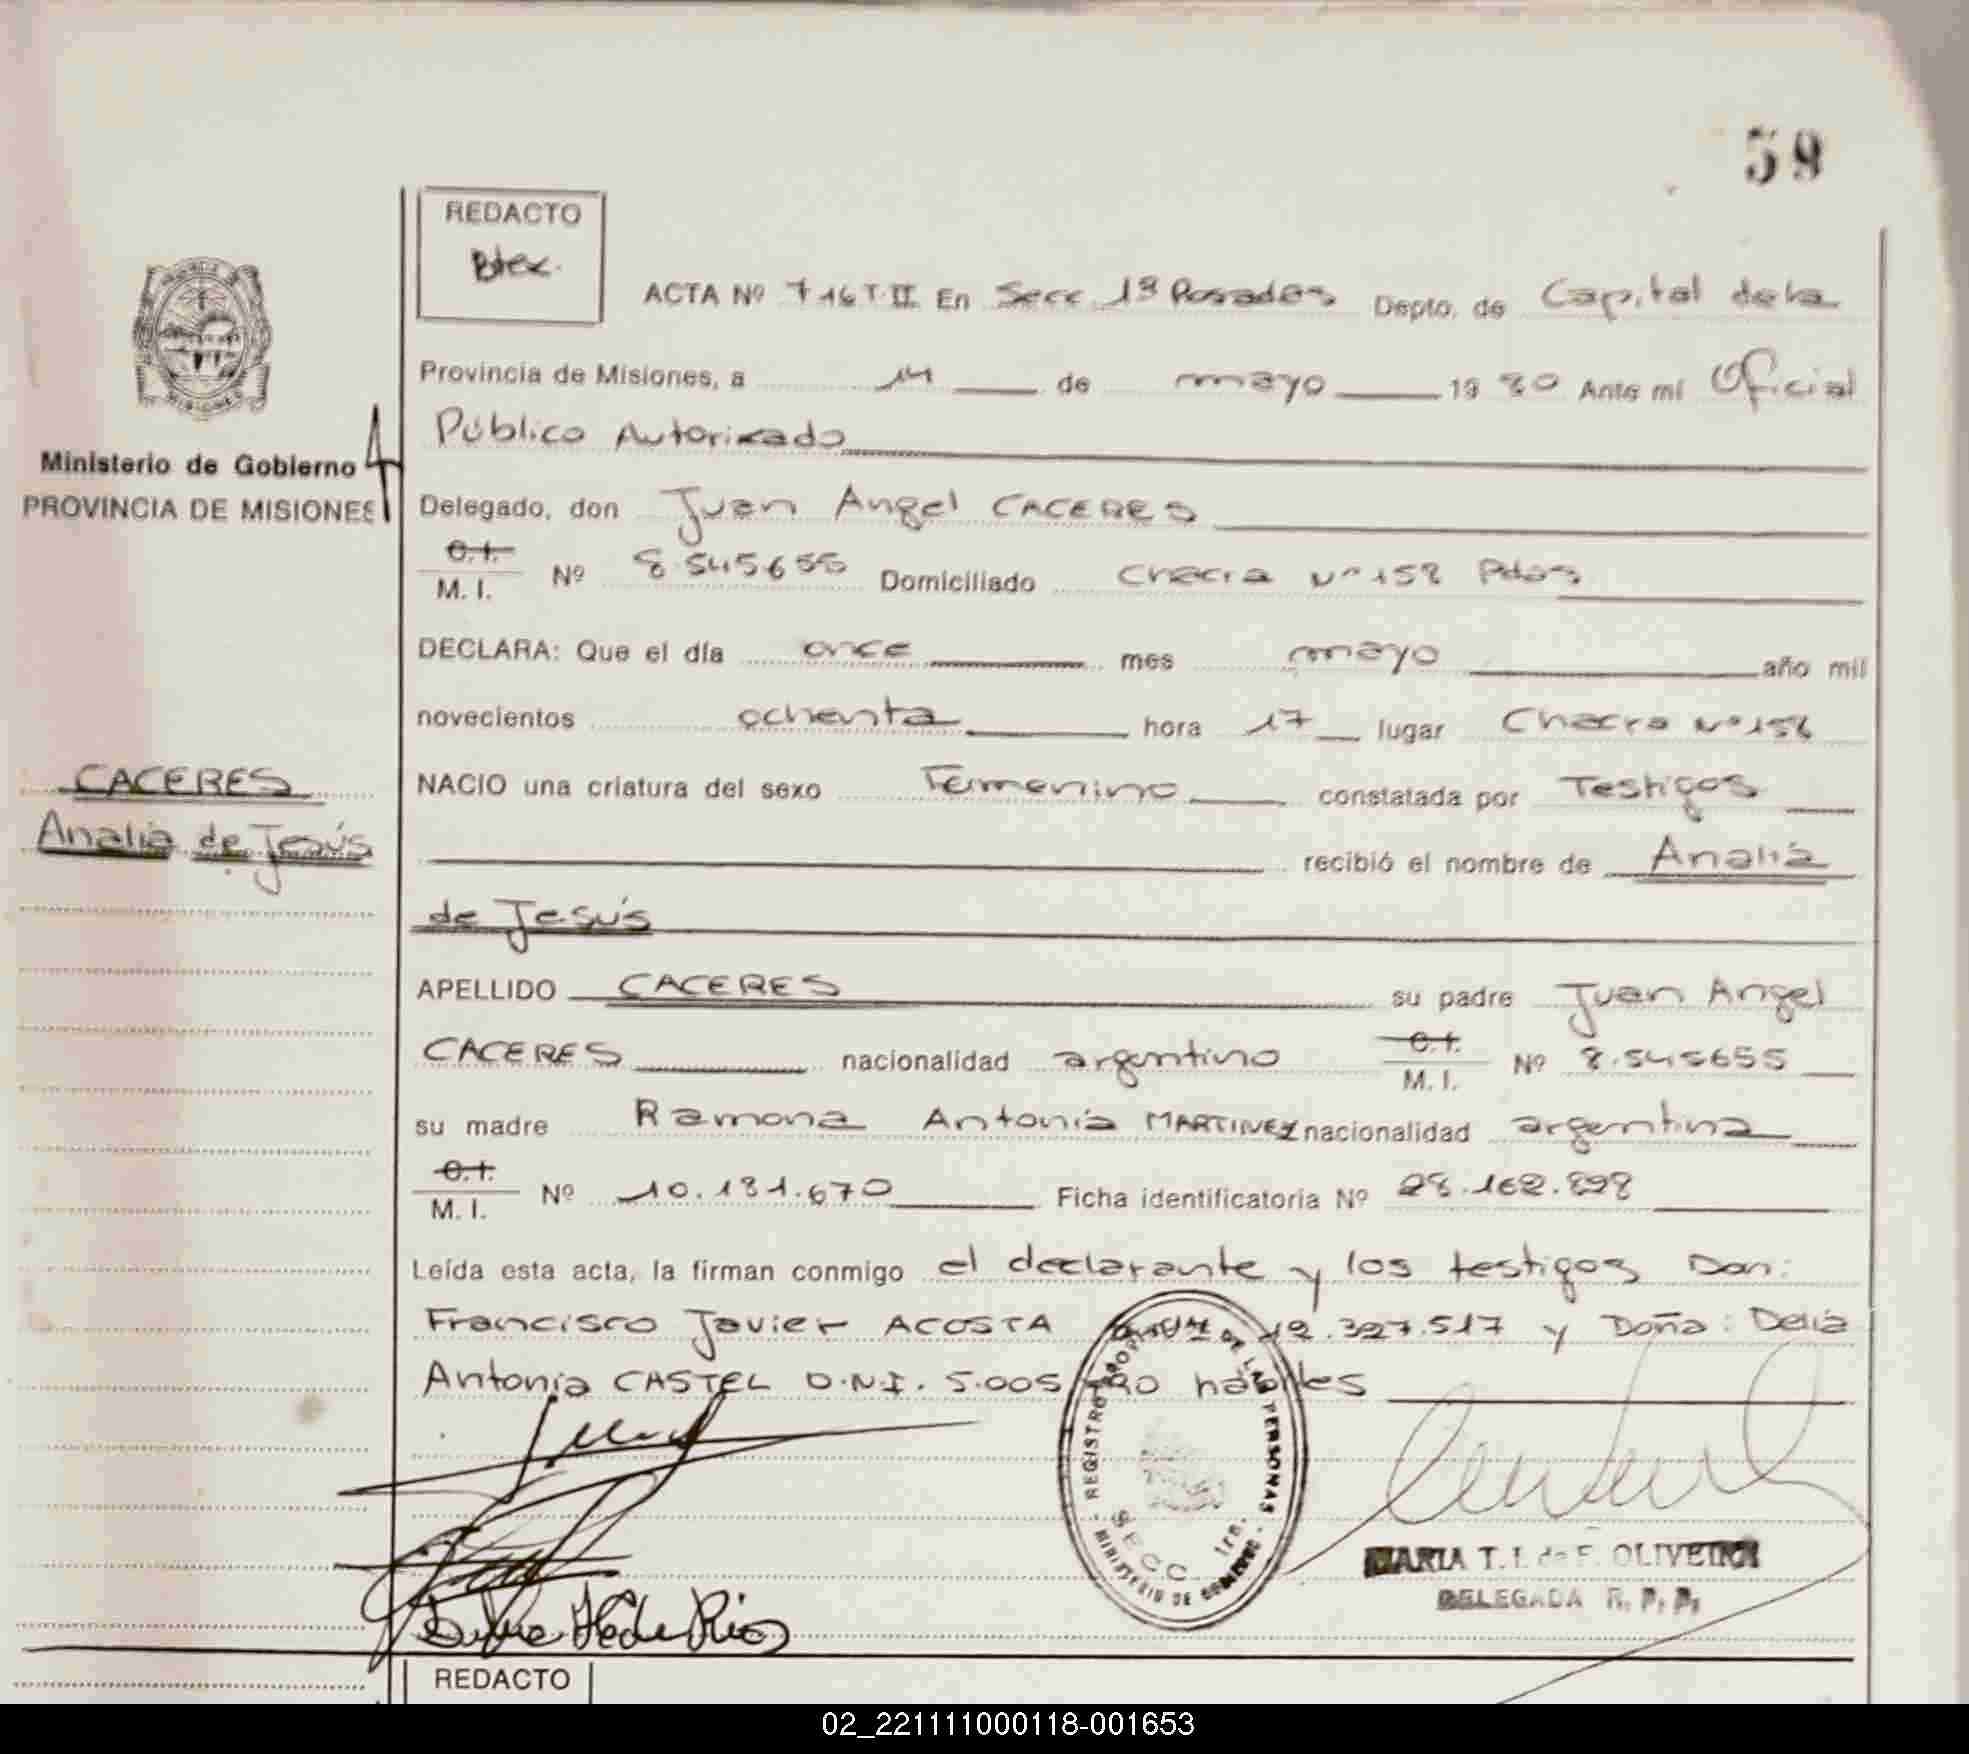 59
REDACTO
ACTA Nº 716 T.II. En Secc 1ª Posadas Depto. de Capital de la
Provincia de Misiones, a 14 de mayo 1980 Ante mí Oficial
Público Autorizado
Ministerio de Gobierno
PROVINCIA DE MISIONES
Delegado, don Juan Angel CACERES
C.I.
M. I. Nº 8.545655 Domiciliado Chacra Nº 158 Pdas
DECLARA: Que el día once mes mayo año mil
novecientos ochenta hora 17 lugar Chacra Nº 158
CACERES
Analia de Jesús
NACIO una criatura del sexo Femenino constatada por Testigos
recibió el nombre de Analia
de Jesús
APELLIDO CACERES su padre Juan Angel
CACERES nacionalidad argentino C.I. M. I. Nº 8.545655
su madre Ramona Antonia MARTINEZ nacionalidad argentina
C.I.
M. I. Nº 10.131.670 Ficha identificatoria Nº 28.162.898
Leída esta acta, la firman conmigo el declarante y los testigos Don:
Francisco Javier ACOSTA 12.327.517 y Doña: Delia
Antonia CASTEL D.N.I. 5.005 hábiles
REGISTRO DE LAS PERSONAS
MINISTERIO DE GOBIERNO
SECC 1ra.
MARIA T. I. de F. OLIVEIRA
DELEGADA R. P. P.
REDACTO
02_221111000118-001653